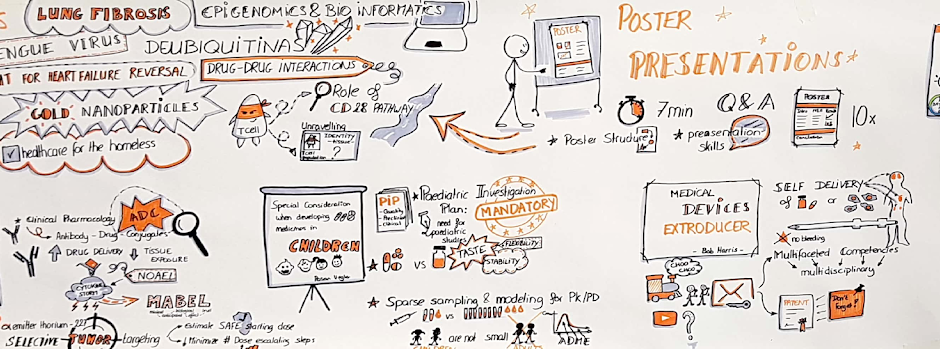 LUNG FIBROSIS
EPIGENOMICS & BIO INFORMATICS
ENGUE VIRUS
DEUBIQUITINAS
T FOR HEART FAILURE REVERSAL
DRUG-DRUG INTERACTIONS
GOLD NANOPARTICLES
healthcare for the homeless
T Cell
Role of
CD28 PATHWAY
Unravelling
IDENTITY
?
POSTER
POSTER
PRESENTATIONS
7min
Q & A
POSTER
10x
Poster Structure
presentation
skills
Clinical Pharmacology
ADC
Antibody - Drug - Conjugates
DRUG DELIVERY
TISSUE
EXPOSURE
NOAEL
CYTOKINE
STORM
MABEL
emitter thorium - 227
SELECTIVE TUMOR targeting
Estimate SAFE starting dose
Minimize # Dose escalating steps
Special Consideration
when developing
medicines in
CHILDREN
PIP
- Quality
Clinical
Paediatric Investigation
Plan:
need for
paediatric
studies
MANDATORY
VS
TASTE
FLEXIBILITY
STABILITY
Sparse sampling & modeling for PK/PD
VS
CHILDREN are not small ADULTS
ADME
MEDICAL
DEVICES
EXTRODUCER
- Bob Harris -
SELF DELIVERY
of or
no bleeding
CHOO
CHOO
Multifaceted Competencies
multidisciplinary
PATENT
Don't
Forget!